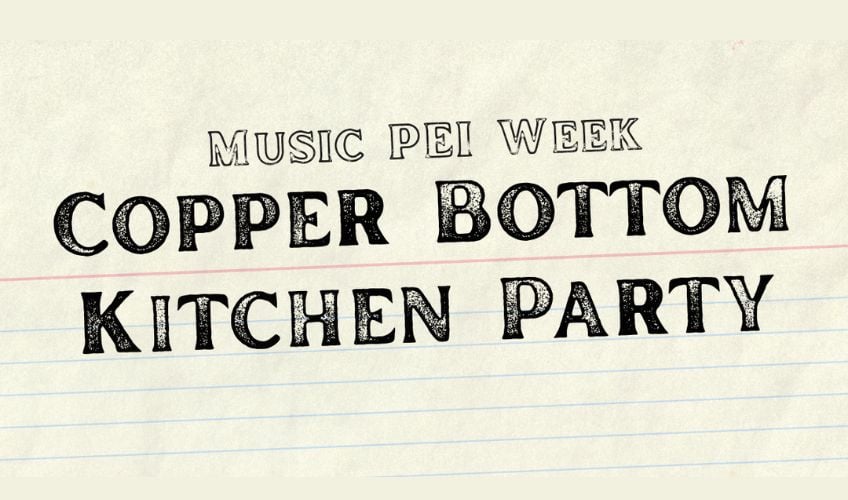 MUSIC PEI WEEK
COPPER BOTTOM
KITCHEN PARTY